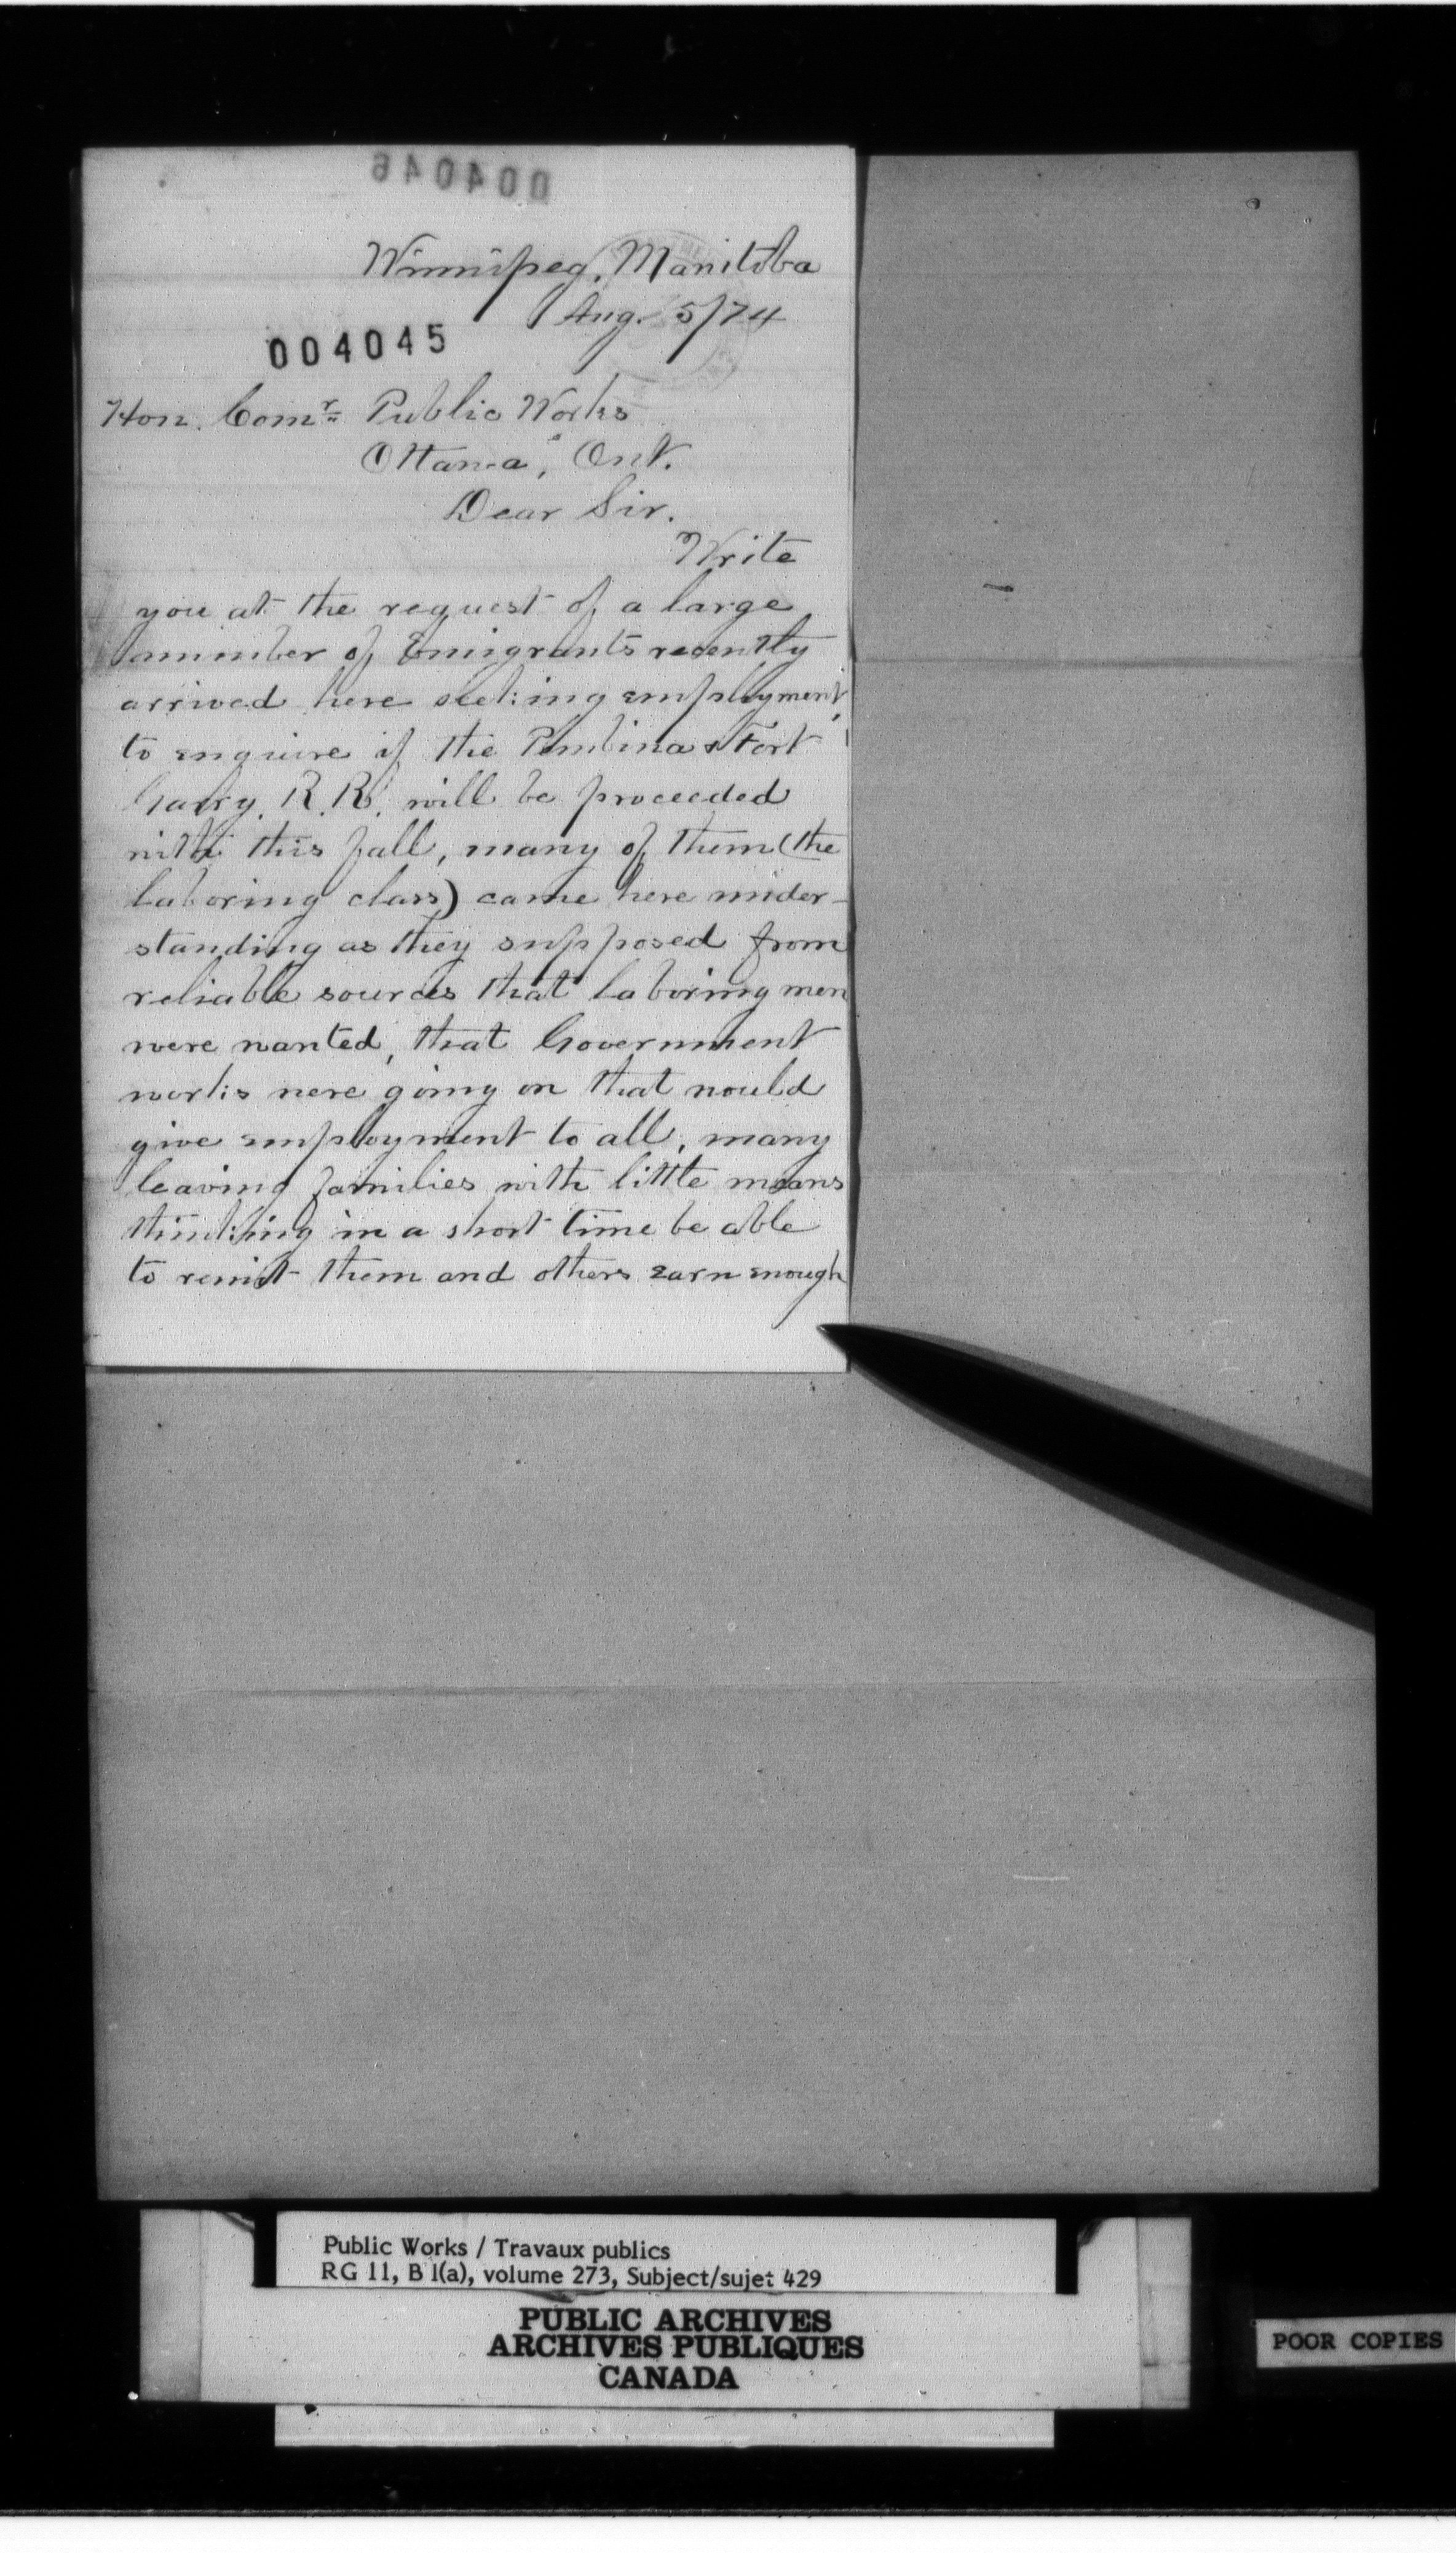 004046
Winnipeg, Manitoba
Aug. 5/74
004045
Hon. Comr Public Works
Ottawa, Ont.
Dear Sir.
Write
you at the request of a large
number of Emigrants recently
arrived here seeking employment,
to enquire if the Pembina & Fort
Garry. R. R. will be proceeded
with this fall, many of them (the
laboring class) came here under-
standing as they supposed from
reliable sources that laboring men
were wanted, that Government
works were going on that would
give employment to all, many
leaving families with little means
thinking in a short time be able
to remit them and others earn enough
Public Works / Travaux publics
RG 11, B 1(a), volume 273, Subject/sujet 429
PUBLIC ARCHIVES
ARCHIVES PUBLIQUES
CANADA
POOR COPIES